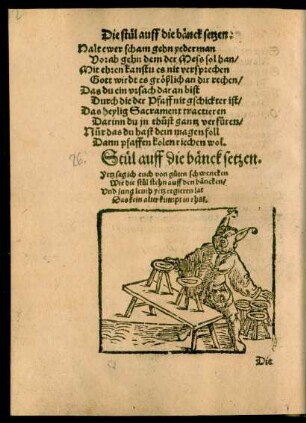 Die stül auff die bänck setzen:
Halt ewer scham gehn yederman
Vorab gehn dem der Mess sol han/
Mit ehren kanstu es nit versprechen
Gott wirdt es größlich an dir rechen/
Das du ein vrsach daran bist
Durch die der Pfaff nit gschickter ist/
Das heylig Sacrament tractieren
Darinn du in thüst gantz verfüren/
Nür das du hast dein magen foll
Dann pfaffen kolen riechen wol.
26.
Stül auff die bänck setzen.
Yetz sag ich euch von güten schwencken
Wie die stül stehn auff den bäncken/
Vnd jung leuth yetz regieren lat
So offe kein alter kumpt in rhat.
Die